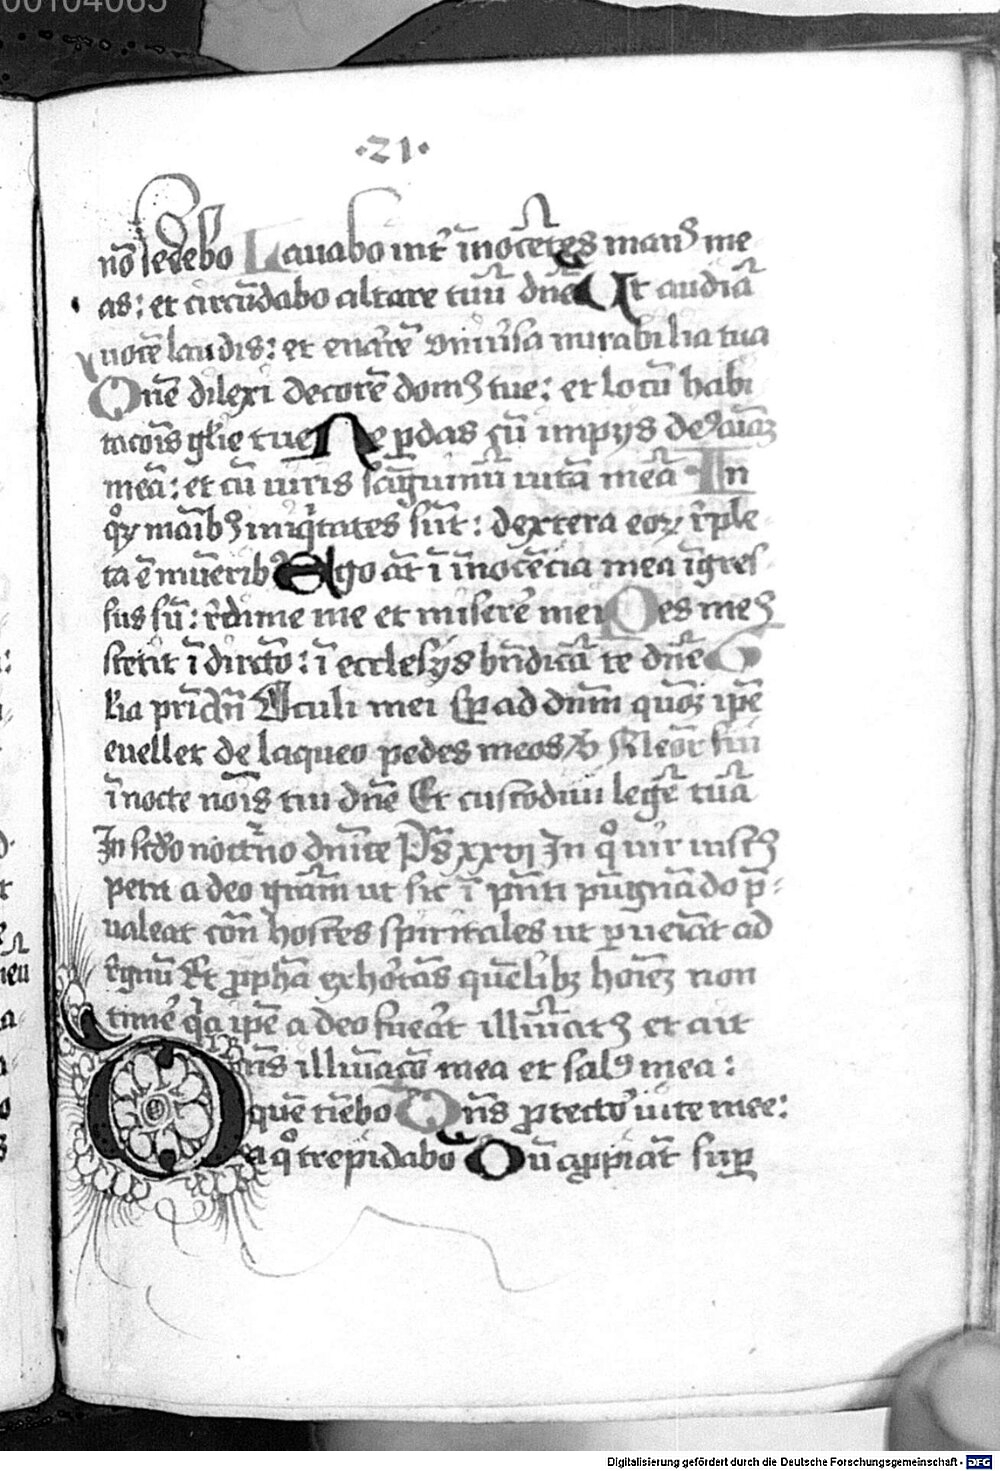 00104065
·21·
nō sedebo Lauabo int̄ īnocētes manꝰ me
as: et circūdabo altare tuū dn̄e Ut audiā
uocē laudis: et enarrē uniūsa mirabilia tua
Dn̄e dilexi decorē domꝰ tue: et locū habi
tacōis gl̄ie tue Ne ꝑdas cū impijs deꝰ aīaꝫ
meā: et cū uiris sāguinū uitā meā In
qͦꝝ maībꝰ iniqͥtates sūt: dextera eoꝝ r̄ple
ta ē mūeribꝰ Ego āt ī īnocēcia mea īgres
sus sū: r̄dime me et miserē mei Pes meꝰ
stetit ī dirc̄to: ī ecclesijs bn̄dicā te dn̄e G
l̄ia pr̄i Oculi mei sꝑ ad dn̄m quōꝫ ip̄e
euellet de laqueo pedes meos
ī nocte noīs tui dn̄e Et custodiui legē tuā
In scd̄o noct̄no dn̄ice Ps̄ xxvj In qͦ uir iustꝰ
petit a deo gr̄am ut sic ī pn̄ti pūgnādo p̄
ualeat cōn̄ hostes spiritales ut ꝑueīat ad
r̄gnū Et ꝓph̄a exhortās quēlībꝫ hoīeꝫ non
timē qͥa ip̄e a deo fueāt illūinatꝰ et ait
Dn̄s illūiacō mea et salꝰ mea:
quē timebo Dn̄s ꝓtector uite mee:
a qͦ trepidabo Dū aꝓpiāt suꝑ
Digitalisierung gefördert durch die Deutsche Forschungsgemeinschaft - DFG